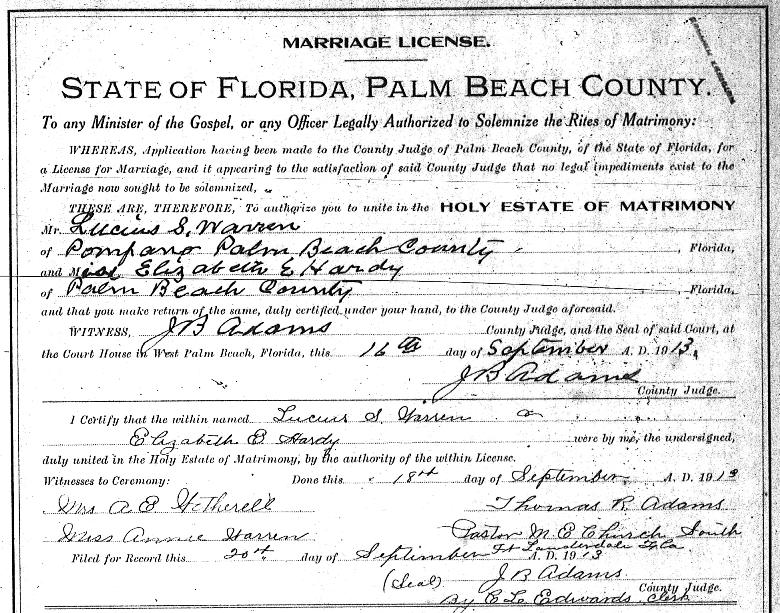 MARRIAGE LICENSE.
STATE OF FLORIDA, PALM BEACH COUNTY.
To any Minister of the Gospel, or any Officer Legally Authorized to Solemnize the Rites of Matrimony:
WHEREAS, Application having been made to the County Judge of Palm Beach County, of the State of Florida, for
a License for Marriage, and it appearing to the satisfaction of said County Judge that no legal impediments exist to the
Marriage now sought to be solemnized,
THESE ARE, THEREFORE, To authorize you to unite in the HOLY ESTATE OF MATRIMONY
Mr. Lucius S. Warren
of Pompano Palm Beach County, Florida,
and Miss Elizabeth E Hardy
of Palm Beach County, Florida,
and that you make return of the same, duly certified under your hand, to the County Judge aforesaid.
WITNESS, J B Adams County Judge, and the Seal of said Court, at
the Court House in West Palm Beach, Florida, this 16th day of September A. D. 1913,
J B Adams
County Judge.
I Certify that the within named Lucius S. Warren
Elizabeth E Hardy were by me, the undersigned,
duly united in the Holy Estate of Matrimony, by the authority of the within License.
Witnesses to Ceremony: Done this 18th day of September, A. D. 1913
Mrs A E Thomas R. Adams
Miss Annie Warren Pastor M E Church, South
Ft Lauderdale Fla
Filed for Record this 20th day of September A. D. 1913
(Seal) J B Adams
County Judge
By E L Edwards Clerk